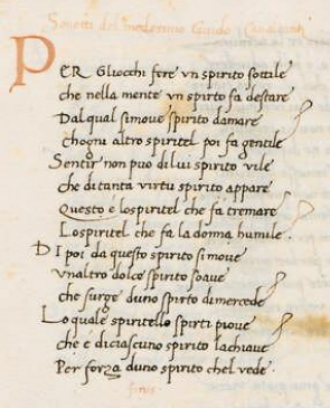 Sonetti del medesimo Guido Caualcanti
PER Gliocchi fere vn spirito sottile
che nella mente vn spirto fa destare
Dalqual simoue spirito damare
chogni altro spiritel poi fa gentile
Sentir non puo dilui spirito vile
che ditanta virtu spirito appare
Questo è lospiritel che fa tremare
Lospiritel che fa la donna humile.
DI poi da questo spirito simoue
vnaltro dolce spirito soaue
che surge duno spirto dimercede
Loquale spiritello spirti pioue
che è diciascuno spirito lachiaue
Per forza duno spirito chel vede.
finis